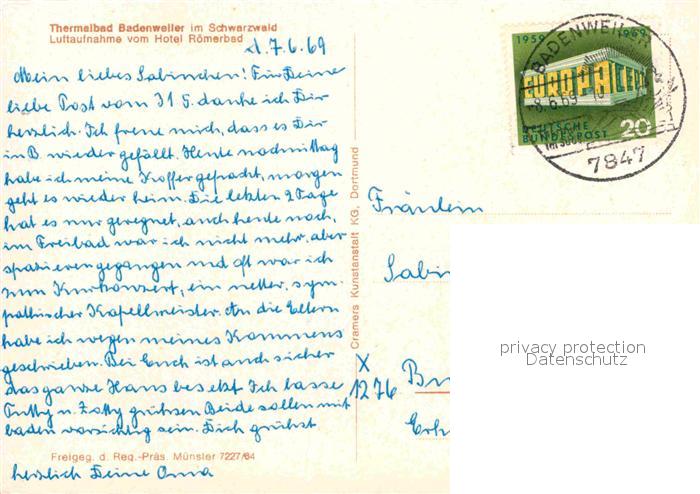 Thermalbad Badenweiler im Schwarzwald
Luftaufnahme vom Hotel Römerbad
d. 7.6.69
Mein liebes Sabinchen! Für Deine
liebe Post vom 31.5. danke ich Dir
herzlich. Ich freue mich, dass es Dir
in B. wieder gefällt. Heute nachmittag
habe ich meine Koffer gepackt, morgen
geht es wieder heim. Die letzten 2 Tage
hat es nur geregnet, auch heute noch,
im Freibad war ich nicht mehr, aber
spazierengegangen und oft war ich
zum Kurkonzert, ein netter, sym-
pathischer Kapellmeister. An die Eltern
habe ich wegen meines Kommens
geschrieben. Bei Euch ist auch sicher
das ganze Haus besetzt. Ich lasse
u. grüssen. Beide sollen mit
baden vorsichtig sein. Dich grüsst
herzlich Deine Oma
Freigeg. d. Reg.-Präs. Münster 7227/64
Cramers Kunstanstalt KG, Dortmund
1959 1969
EUROPA CEPT
DEUTSCHE
BUNDESPOST 20
BADENWEILER
-8.6.69
7847
Fräulein
Sabin
X
1276 Bu
Erh
privacy protection
Datenschutz